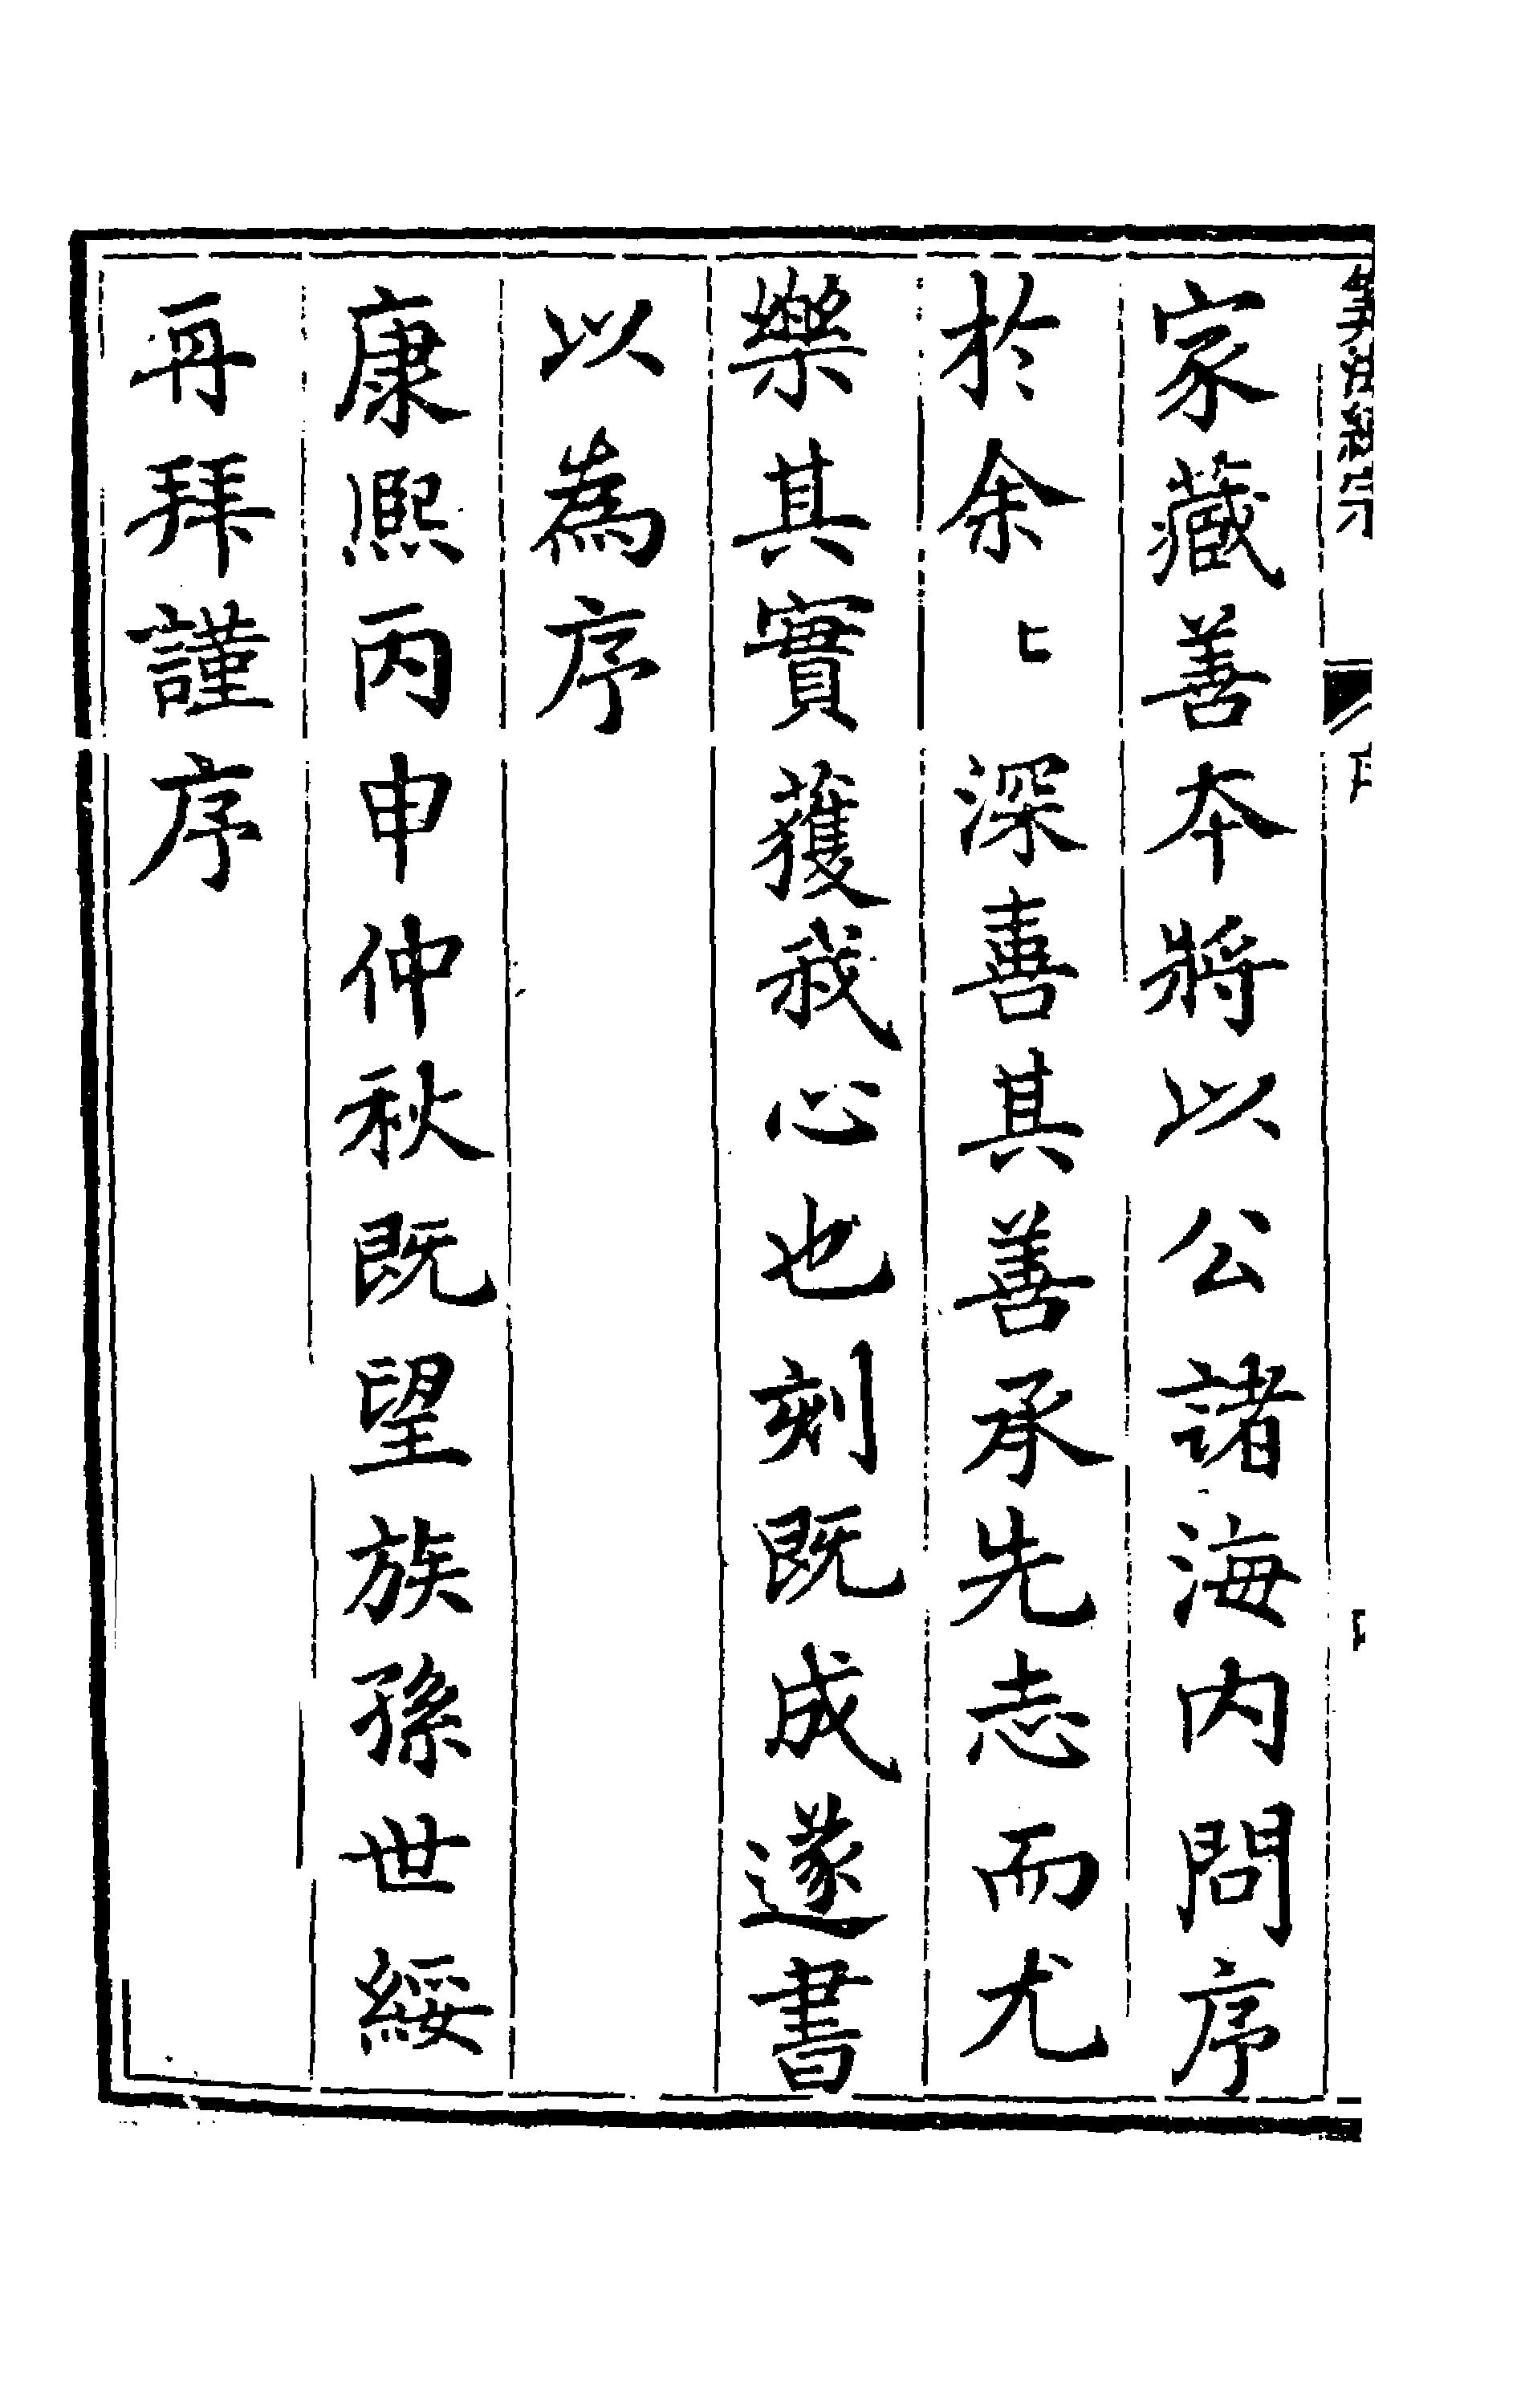 算法統宗 序 四
家藏善本將以公諸海内問序
於余〻深喜其善承先志而尤
樂其實獲我心也刻既成遂書
以為序
康熙丙申仲秋既望族孫世綏
再拜謹序